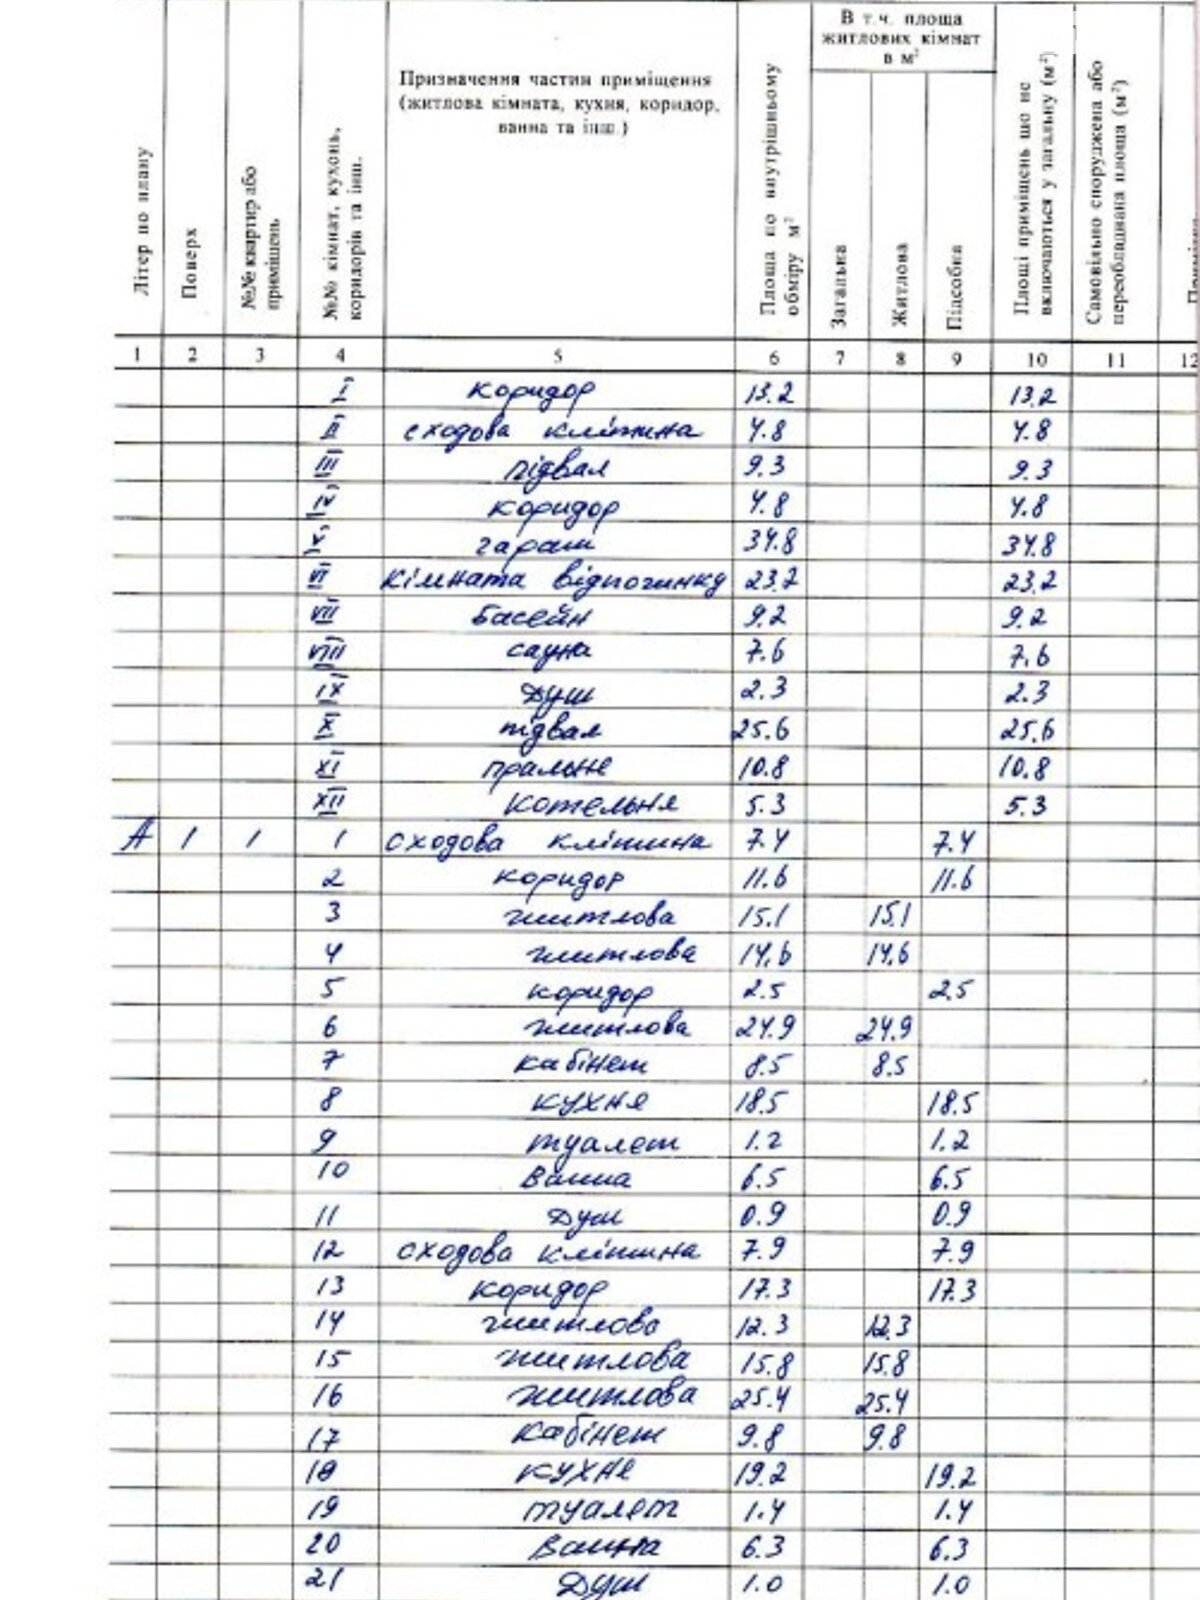 Літер по плану
Поверх
№№ квартир або приміщень
№№ кімнат, кухонь, коридорів та інш.
Призначення частин приміщення
(житлова кімната, кухня, коридор,
ванна та інш.)
Площа по внутрішньому обміру м²
В т.ч. площа
житлових кімнат
в м²
Загальна
Житлова
Підсобна
Площі приміщень що не включаються у загальну (м²)
Самовільно споруджена або переобладнана площа (м²)
1 2 3 4 5 6 7 8 9 10 11 12
I коридор 13.2 13.2
II сходова клітина 4.8 4.8
III підвал 9.3 9.3
IV коридор 4.8 4.8
V гараж 34.8 34.8
VI кімната відпочинку 23.2 23.2
VII басейн 9.2 9.2
VIII сауна 7.6 7.6
IX душ 2.3 2.3
X підвал 25.6 25.6
XI пральне 10.8 10.8
XII котельня 5.3 5.3
А 1 1 1 сходова клітина 7.4 7.4
2 коридор 11.6 11.6
3 житлова 15.1 15.1
4 житлова 14.6 14.6
5 коридор 2.5 2.5
6 житлова 24.9 24.9
7 кабінет 8.5 8.5
8 кухня 18.5 18.5
9 туалет 1.2 1.2
10 ванна 6.5 6.5
11 душ 0.9 0.9
12 сходова клітина 7.9 7.9
13 коридор 17.3 17.3
14 житлова 12.3 12.3
15 житлова 15.8 15.8
16 житлова 25.4 25.4
17 кабінет 9.8 9.8
18 кухня 19.2 19.2
19 туалет 1.4 1.4
20 ванна 6.3 6.3
21 душ 1.0 1.0